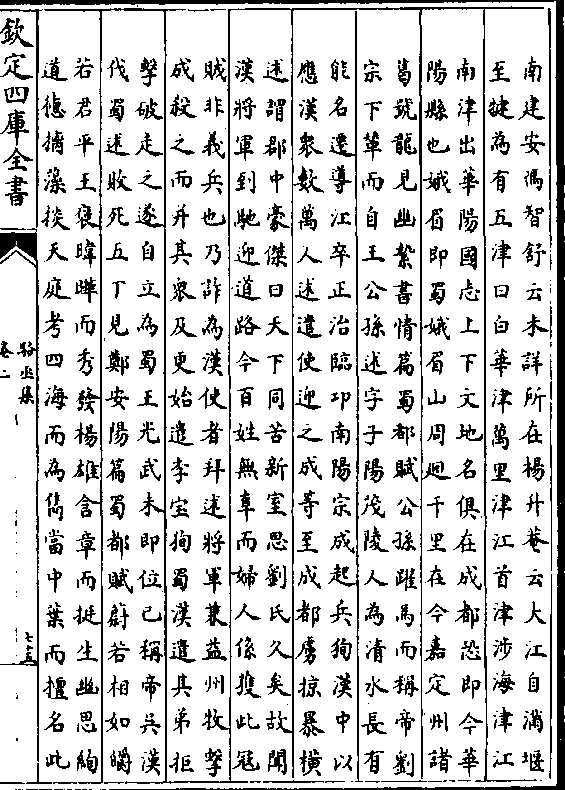 南建安馮智舒云未詳所在楊升菴云大江自湔堰
至犍為有五津曰白華津萬里津江首津涉海津江
南津出華陽國志上下文地名俱在成都恐即今華
陽縣也峨眉即蜀峨眉山周廻千里在今嘉定州諸
葛號龍見幽縶書情篇蜀都賦公孫躍馬而稱帝劉
宗下輦而自王公孫述字子陽茂陵人為清水長有
能名遷導江卒正治臨邛南陽宗成起兵狥漢中以
應漢衆數萬人述遣使迎之成等至成都虜掠暴橫
述謂郡中豪傑曰天下同苦新室思劉氏久矣故聞
漢將軍到馳迎道路今百姓無辜而婦人係獲此冦
賊非義兵也乃詐為漢使者拜述將軍蓋益州牧擊
成殺之而并其衆及更始遣李宝狥蜀漢遣其弟拒
擊破走之遂自立為蜀王光武未即位已稱帝吳漢
伐蜀述敗死五丁見鄭安陽篇蜀都賦蔚若相如皭
若君平王褒暐曄而秀發楊雄含章而挺生幽思絢
道德摛藻掞天庭考四海而為儁當中葉而擅名此
欽定四庫全書
卷二